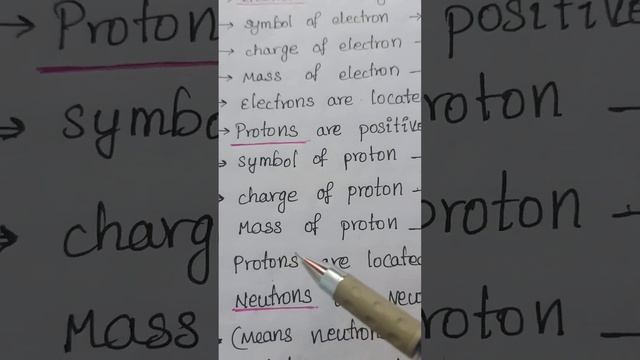 → symbol of electron →
→ charge of electron -
→ Mass of electron -
→ Electrons are locate
→ Protons are positive
→ symbol of proton -
charge of proton -
Mass of proton -
Protons are located
Neutrons neu
(Means neutron
→ Proton
symbo
charg
Mass
positive
roton -
proton -
roton